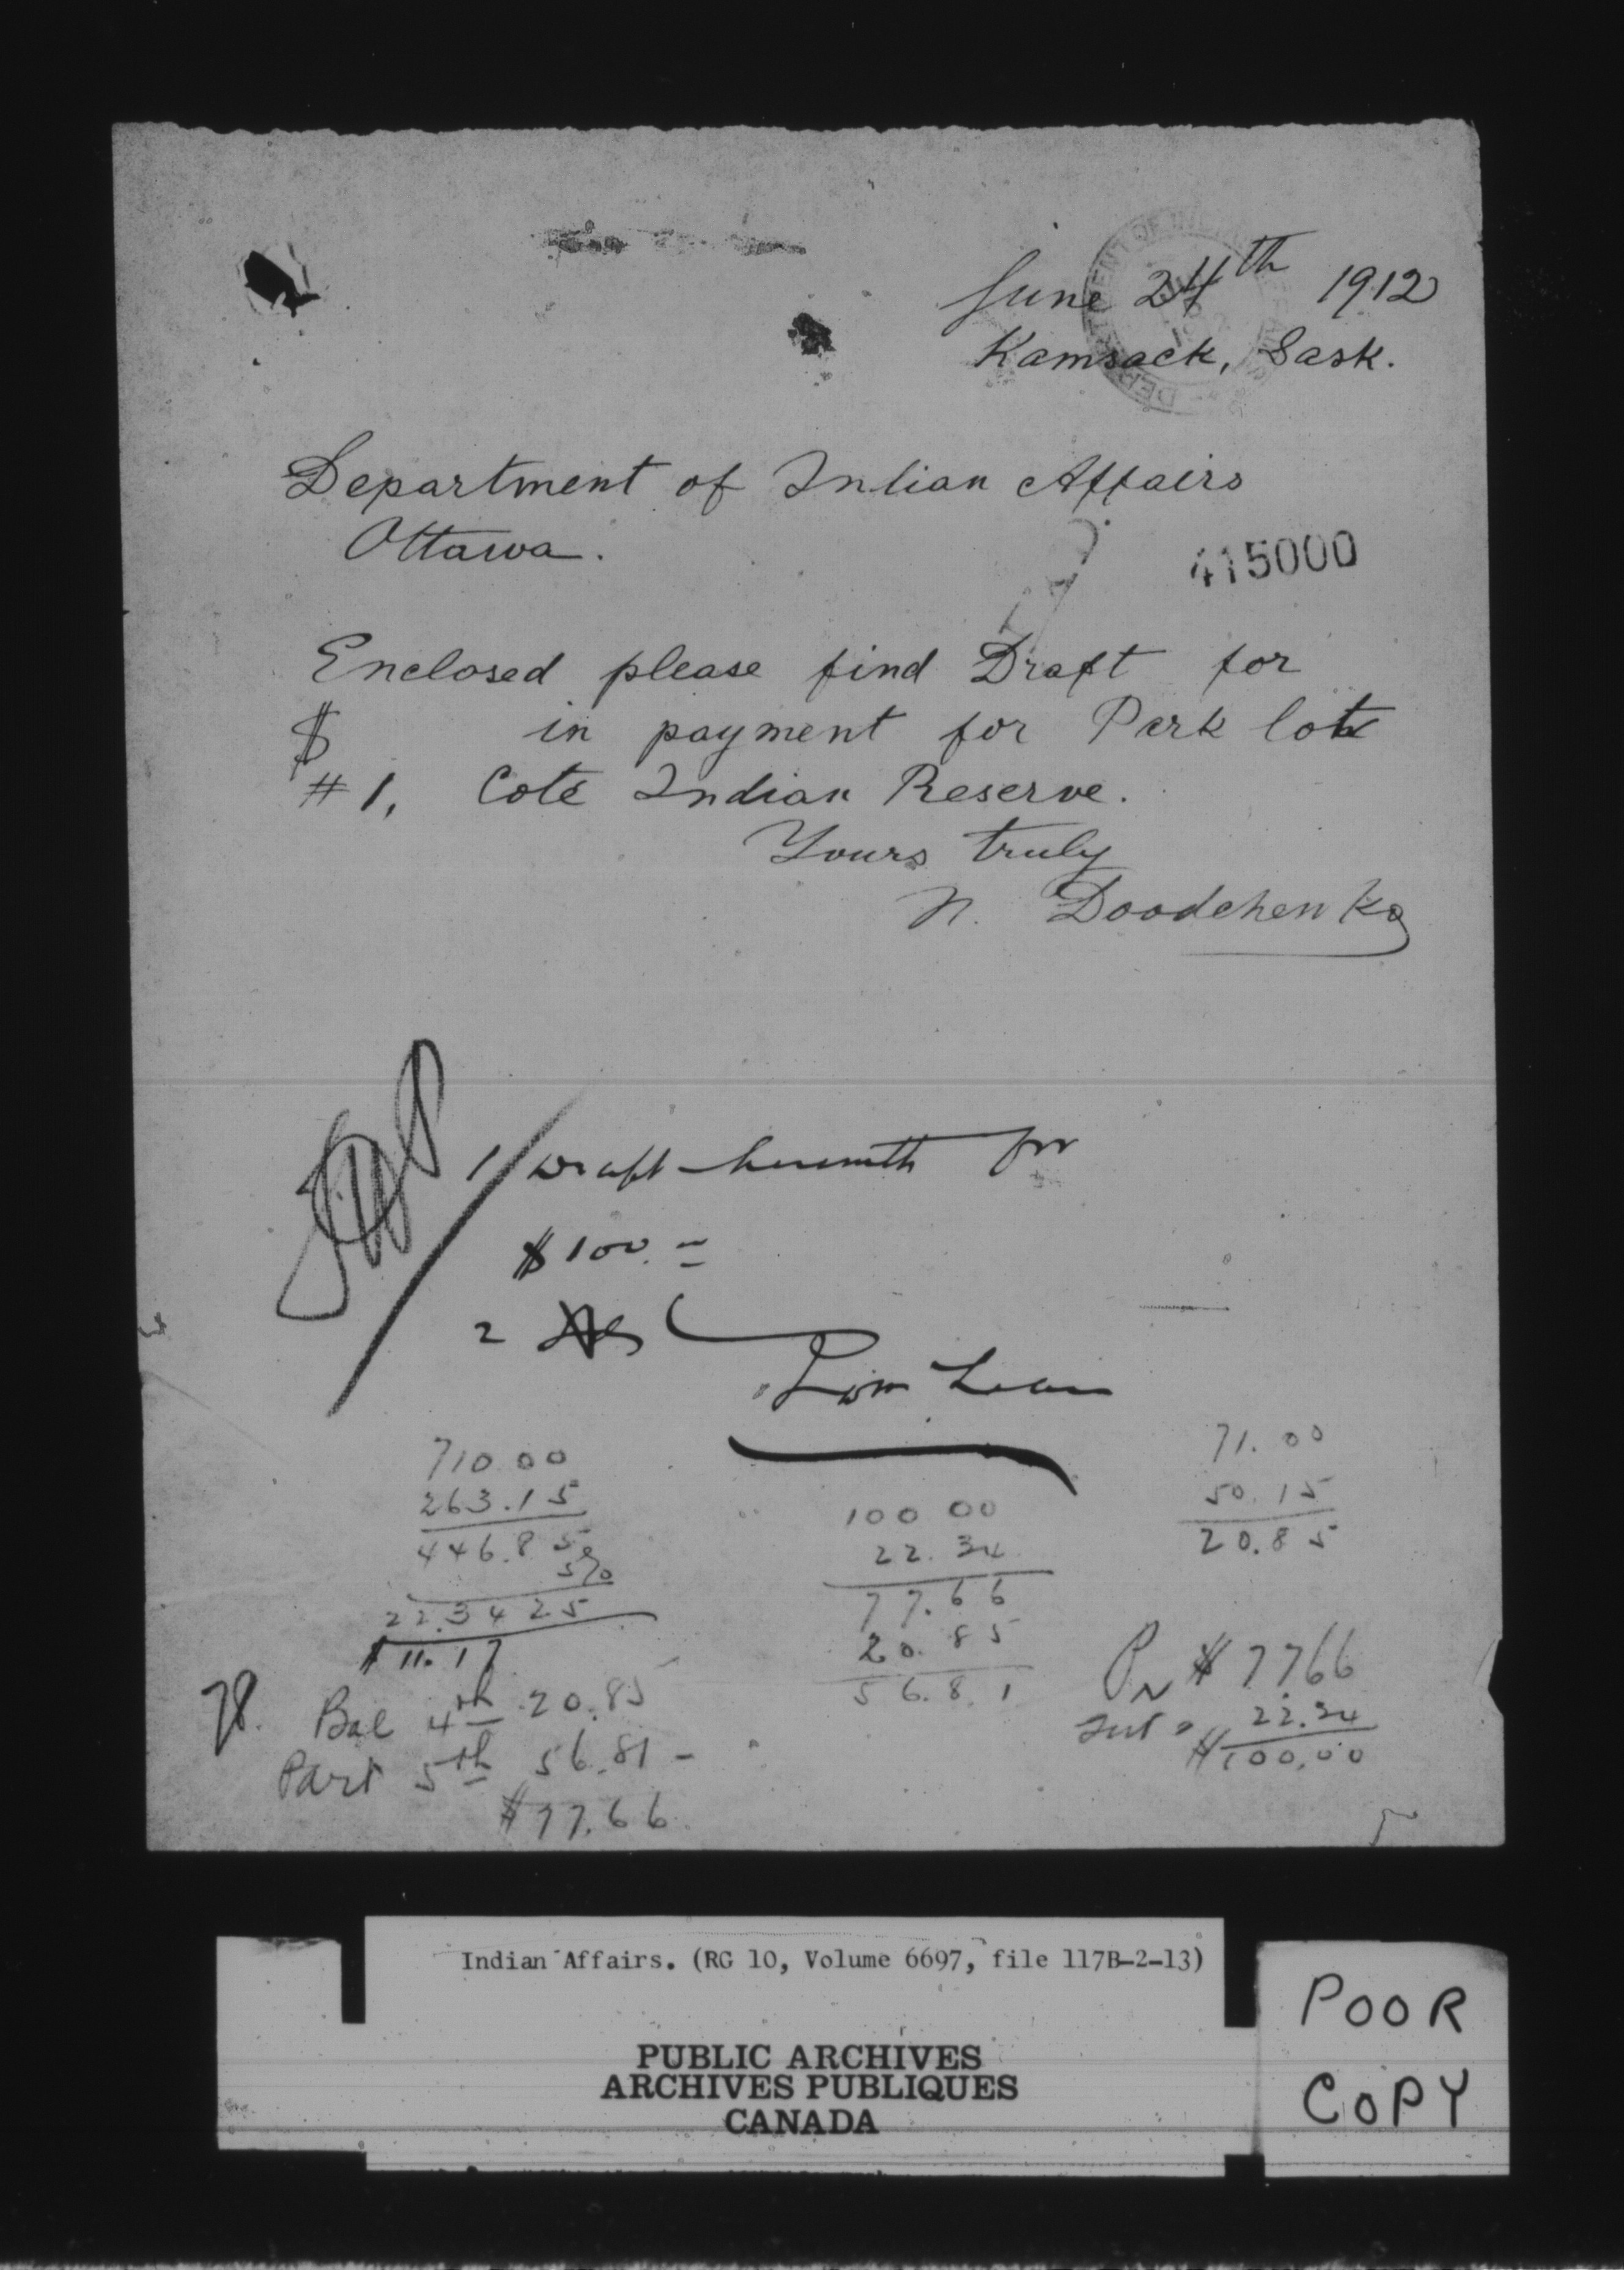 June 24th 1912
Kamsack, Sask.
Department of Indian Affairs
Ottawa.
415000
Enclosed please find Draft for
$ in payment for Park lot
#1, Cote Indian Reserve.
Yours truly
N. Doodchenko
1 Draft herewith for
$100.=
2
710.00
263.15
446.85
5%
22.3425
$11.17
100 00
22.34
77.66
20.85
56.81
71.00
50.15
20.85
Bal 4th 20.85
Part 5th 56.81 -
$77.66
$7766
Int 22.34
$100.00
Indian Affairs. (RG 10, Volume 6697, file 117B-2-13)
PUBLIC ARCHIVES
ARCHIVES PUBLIQUES
CANADA
POOR
COPY